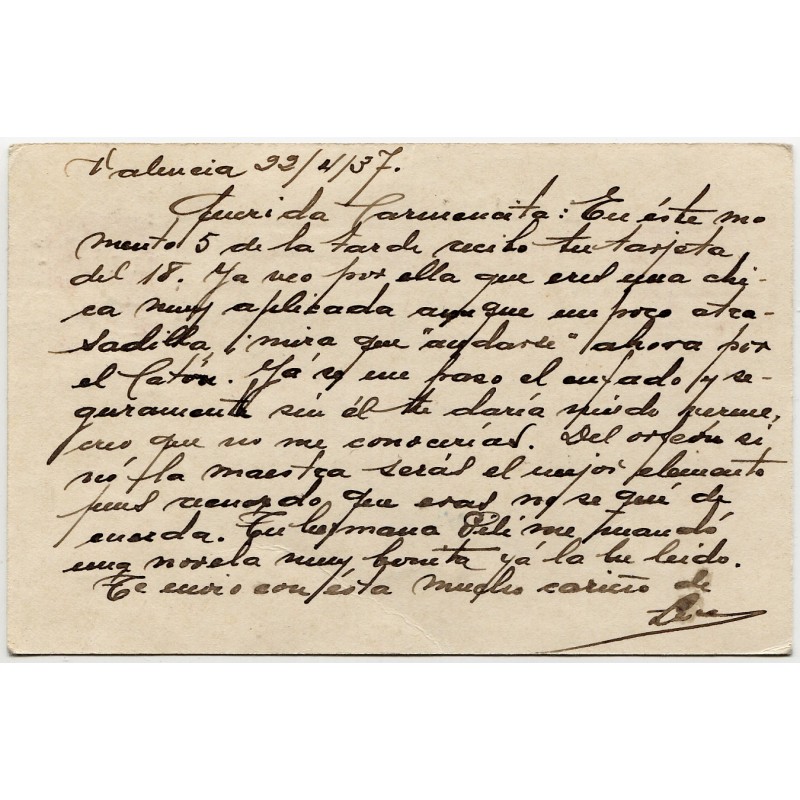 Valencia 22/4/37.
Querida Carmencita: En éste mo
mento 5 de la tarde recibo tu tarjeta
del 18. Ya veo por ella que eres una chi-
ca muy aplicada aunque un poco atra-
sadilla, ¡mira que "andarse" ahora por
el Catón. Yá se me paso el enfado y se-
guramente sin él te daría miedo verme,
creo que no me conocerías. Del orfeón si
nó la maestra serás el mejor elemento
pues recuerdo que eras no se qué de
cuerda. Tu hermana Pili me mandó
una novela muy bonita yá la he leido.
Te envio con ésta mucho cariño de